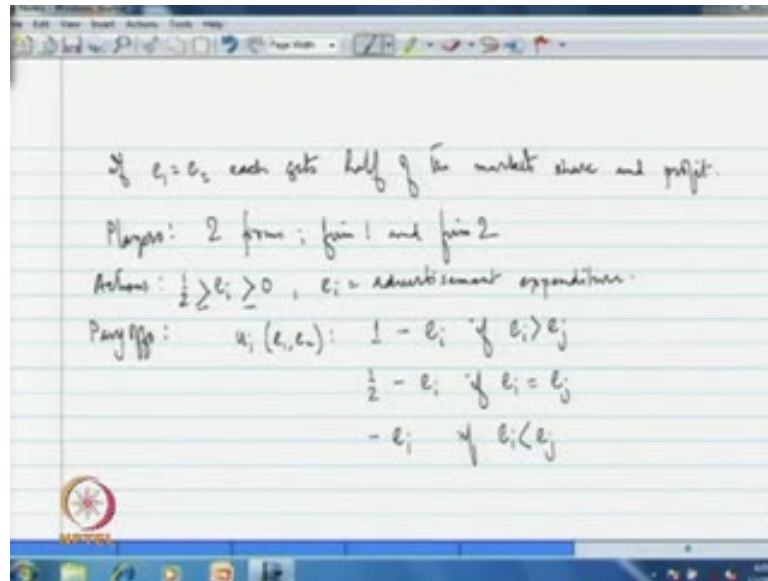 Edit View Insert Actions Tools Help
Page Width
If e₁ = e₂ each gets half of the market share and profit.
Players: 2 firms; firm 1 and firm 2
Actions: 1/2 ≥ eᵢ ≥ 0, eᵢ = advertisement expenditure.
Payoffs: uᵢ(e₁,e₂): 1 - eᵢ if eᵢ > eⱼ
1/2 - eᵢ if eᵢ = eⱼ
- eᵢ if eᵢ < eⱼ
NPTEL